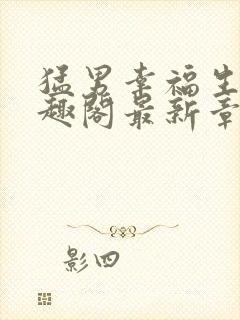 猛男幸福生
趣阁最新章
影四